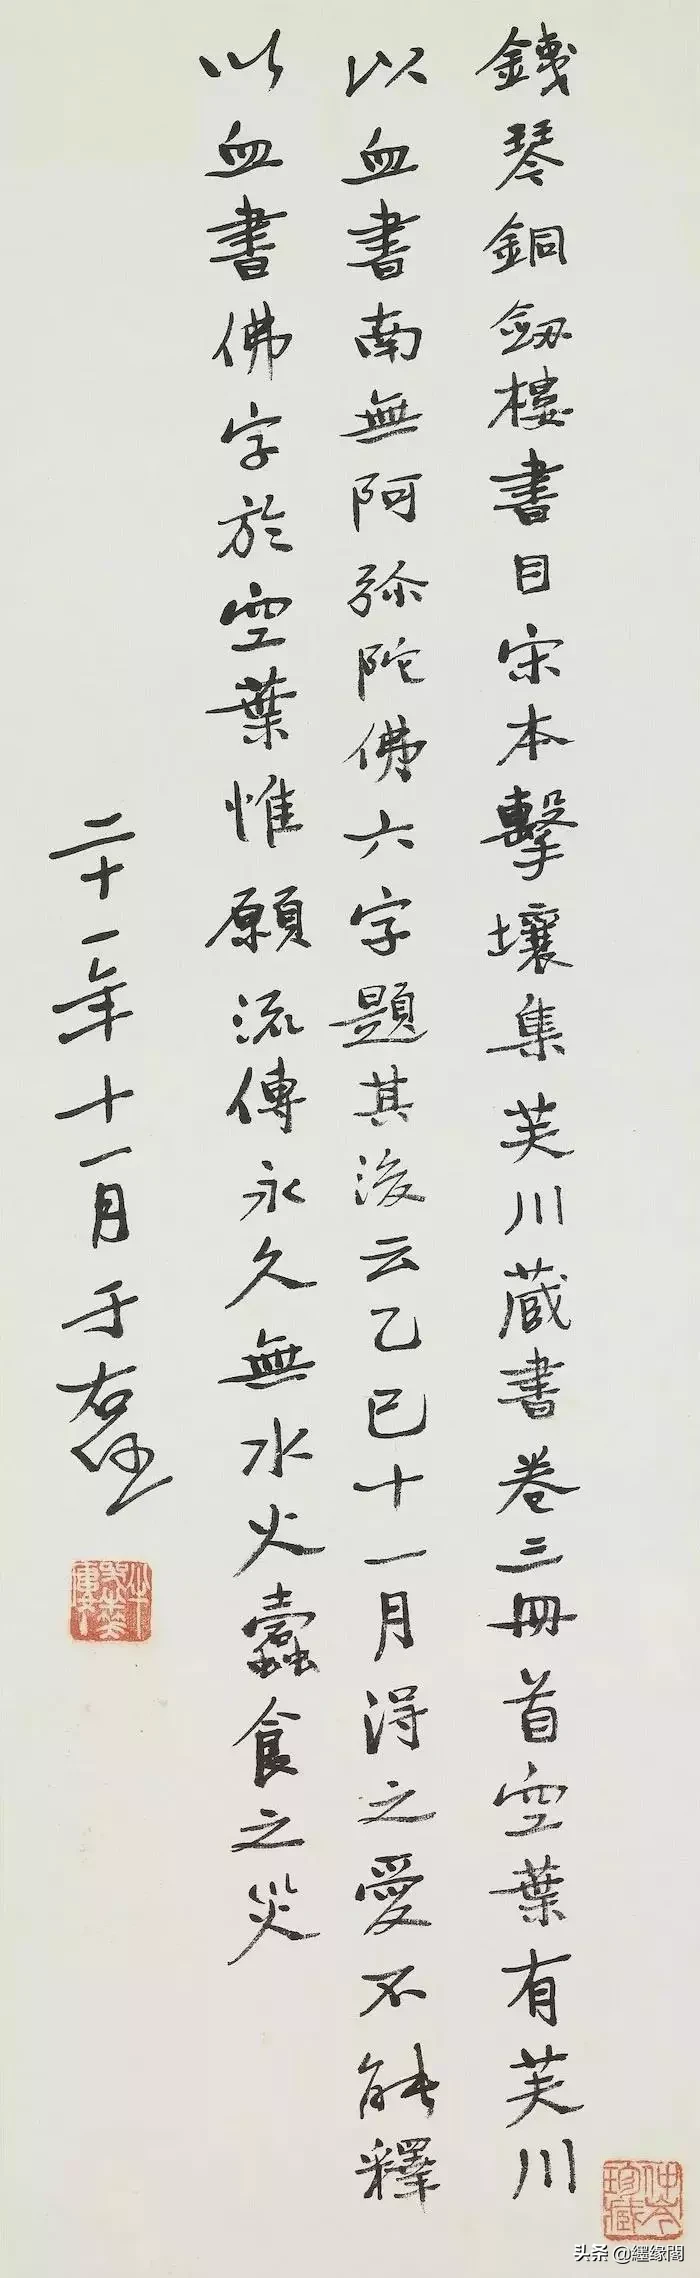 鐵琴銅劔樓書目宋本擊壤集芙川藏書卷三冊首空葉有芙川
以血書南無阿弥陀佛六字題其後云乙巳十一月得之愛不能釋
以血書佛字於空葉惟願流傳永久無水火蠹食之災
二十一年十一月于右任
仲岑珍藏
头条 @纆缘閣